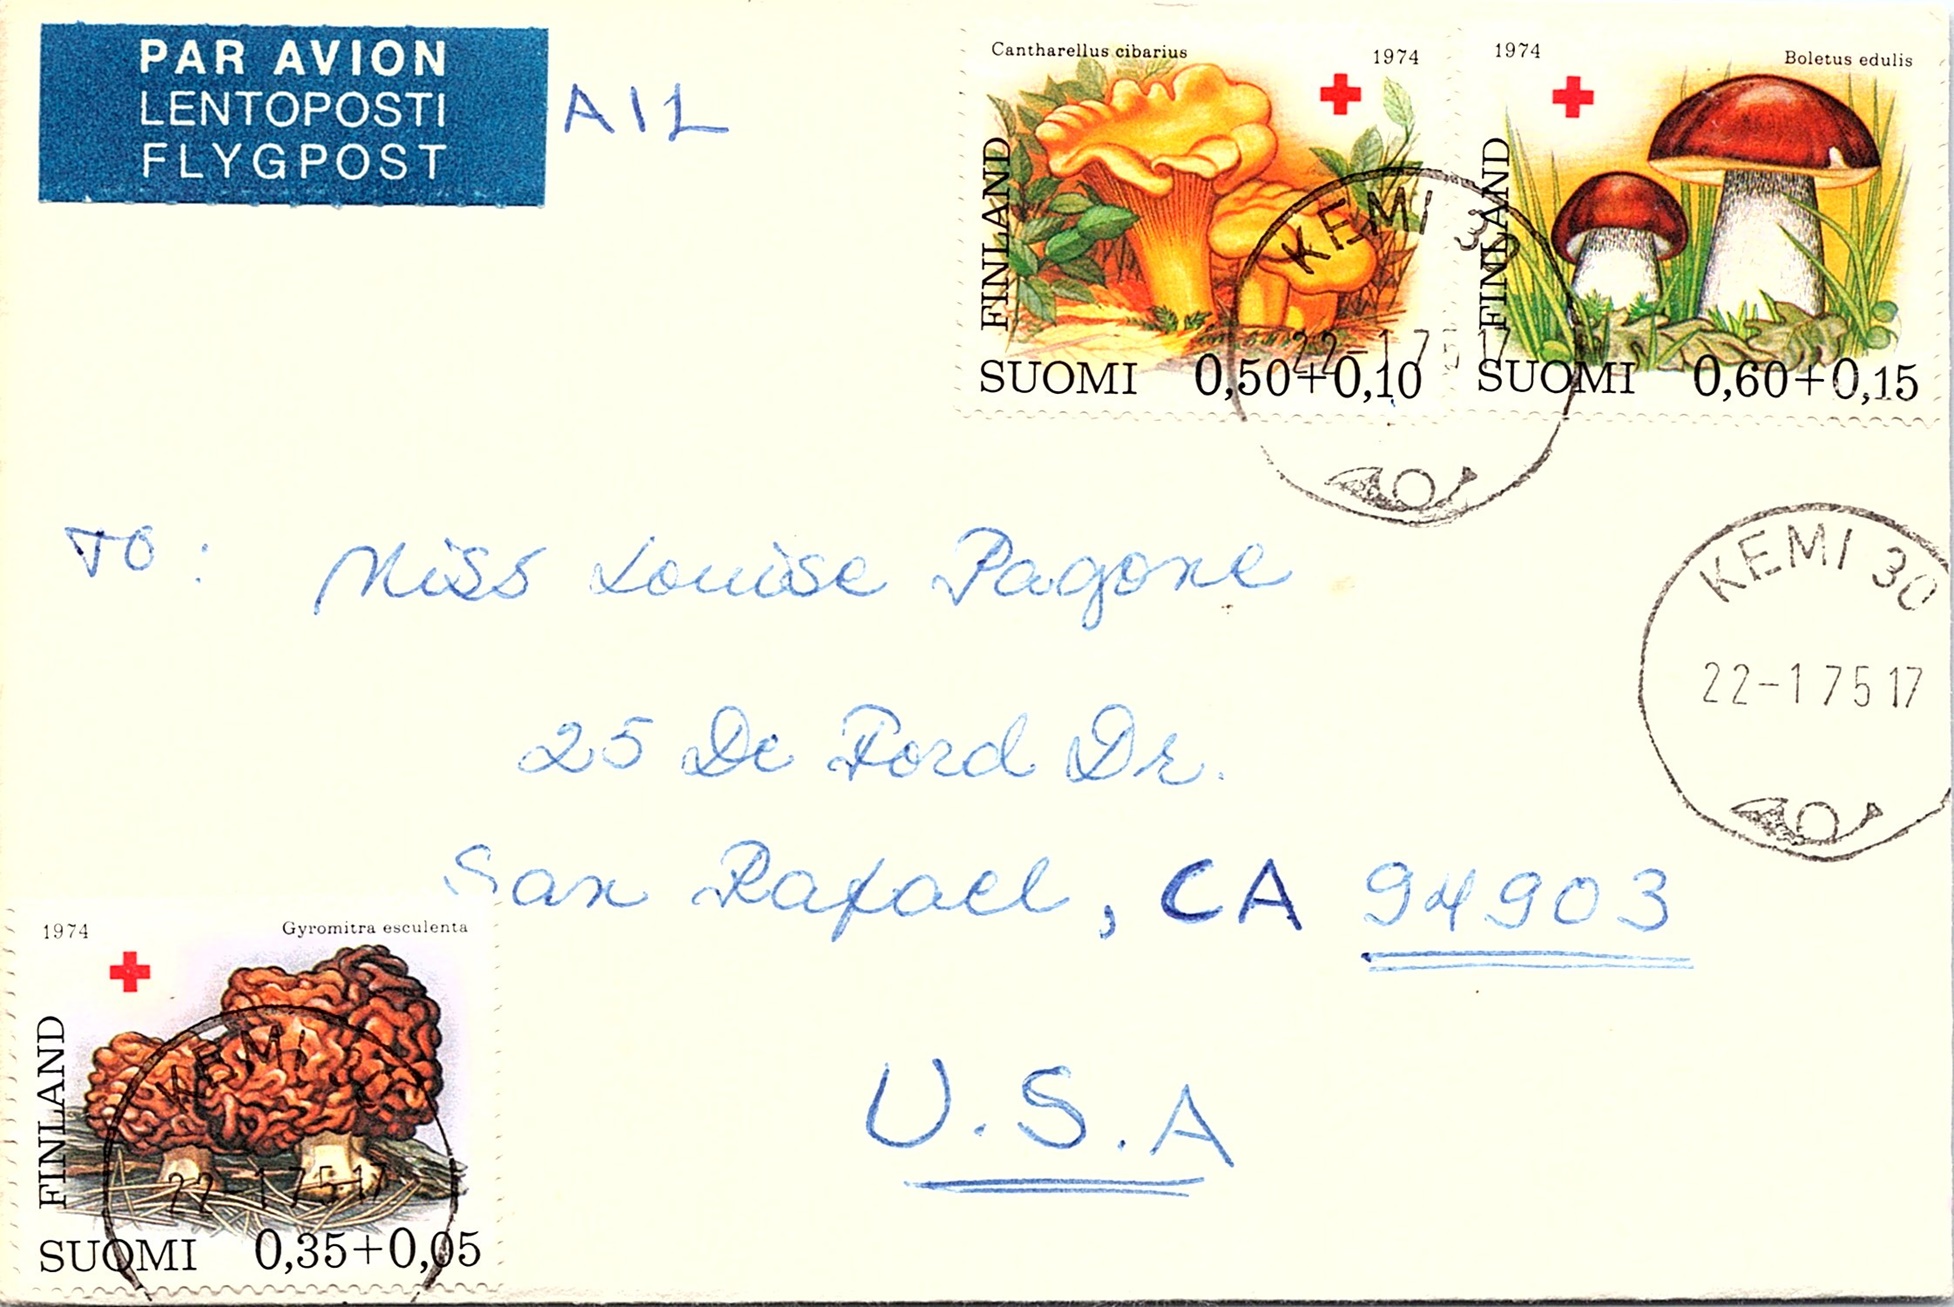 PAR AVION
LENTOPOSTI
FLYGPOST
AIL
Cantharellus cibarius 1974
FINLAND
SUOMI 0,50+0,10
1974 Boletus edulis
FINLAND
SUOMI 0,60+0,15
KEMI 30
22-1 75 17
TO: Miss Louise Pagone
KEMI 30
22-1 75 17
25 De Ford Dr.
San Rafael, CA 94903
U.S.A
1974 Gyromitra esculenta
FINLAND
KEMI
22-1 75-17
SUOMI 0,35+0,05